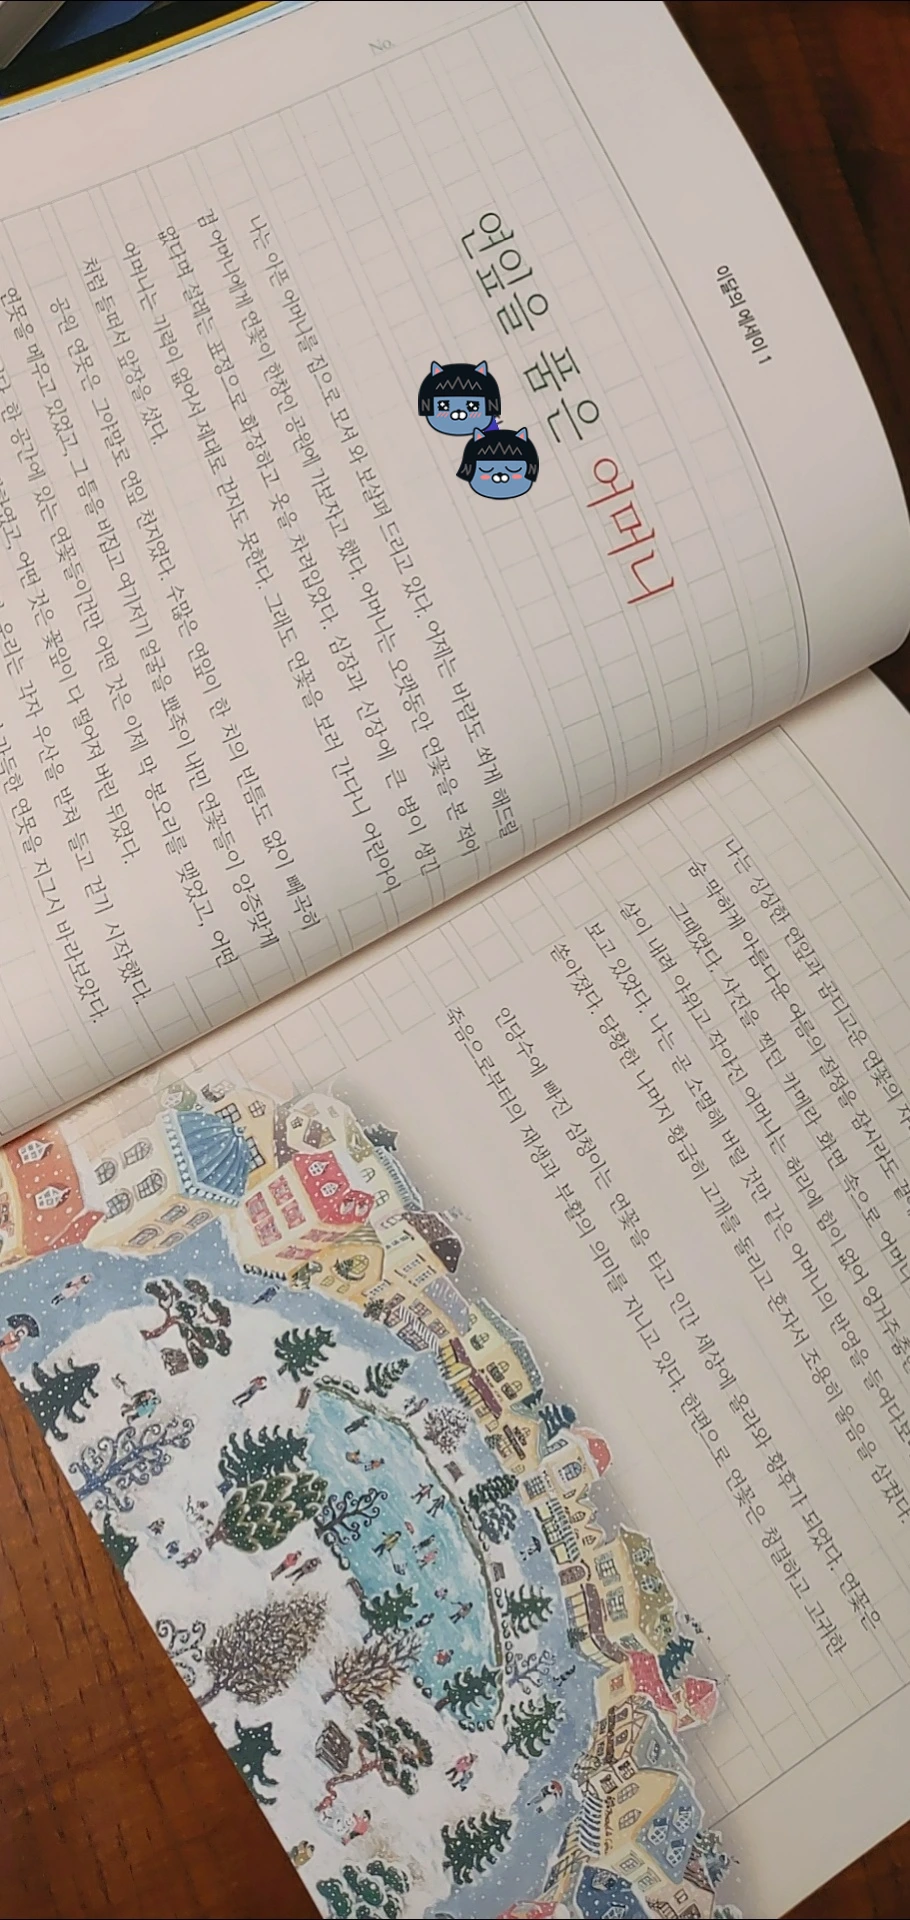 No.
이달의 에세이 1
연잎을 품은 어머니
나는 아픈 어머니를 집으로 모셔 와 보살펴 드리고 있다. 어제는 바람도 쐬게 해드릴
겸 어머니에게 연꽃이 한창인 공원에 가보자고 했다. 어머니는 오랫동안 연꽃을 본 적이
없다며 설레는 표정으로 화장하고 옷을 차려입었다. 심장과 신장에 큰 병이 생긴
어머니는 기력이 없어서 제대로 걷지도 못한다. 그래도 연꽃을 보러 간다니 어린아이
처럼 들떠서 앞장을 섰다.
공원 연못은 그야말로 연잎 천지였다. 수많은 연잎이 한 치의 빈틈도 없이 빼곡히
연못을 메우고 있었고, 그 틈을 비집고 여기저기 얼굴을 뾰족이 내민 연꽃들이 앙증맞게
한 공간에 있는 연꽃들이건만 어떤 것은 이제 막 봉오리를 맺었고, 어떤
어떤 것은 꽃잎이 다 떨어져 버린 뒤였다.
우리는 각자 우산을 받쳐 들고 걷기 시작했다.
가득한 연못을 지그시 바라보았다.
나는 싱싱한 연잎과 곱디고운 연꽃의
숨 막히게 아름다운 여름의 절정을 잠시라도
그때였다. 사진을 찍던 카메라 화면 속으로 어머니
살이 내려 야위고 작아진 어머니는 허리에 힘이 없어
보고 있었다. 나는 곧 소멸해 버릴 것만 같은 어머니의 반영을 들여다보
쏟아졌다. 당황한 나머지 황급히 고개를 돌리고 혼자서 조용히 울음을 삼켰다.
인당수에 빠진 심청이는 연꽃을 타고 인간 세상에 올라와 황후가 되었다. 연꽃은
죽음으로부터의 재생과 부활의 의미를 지니고 있다. 한편으로 연꽃은 청결하고 고귀한